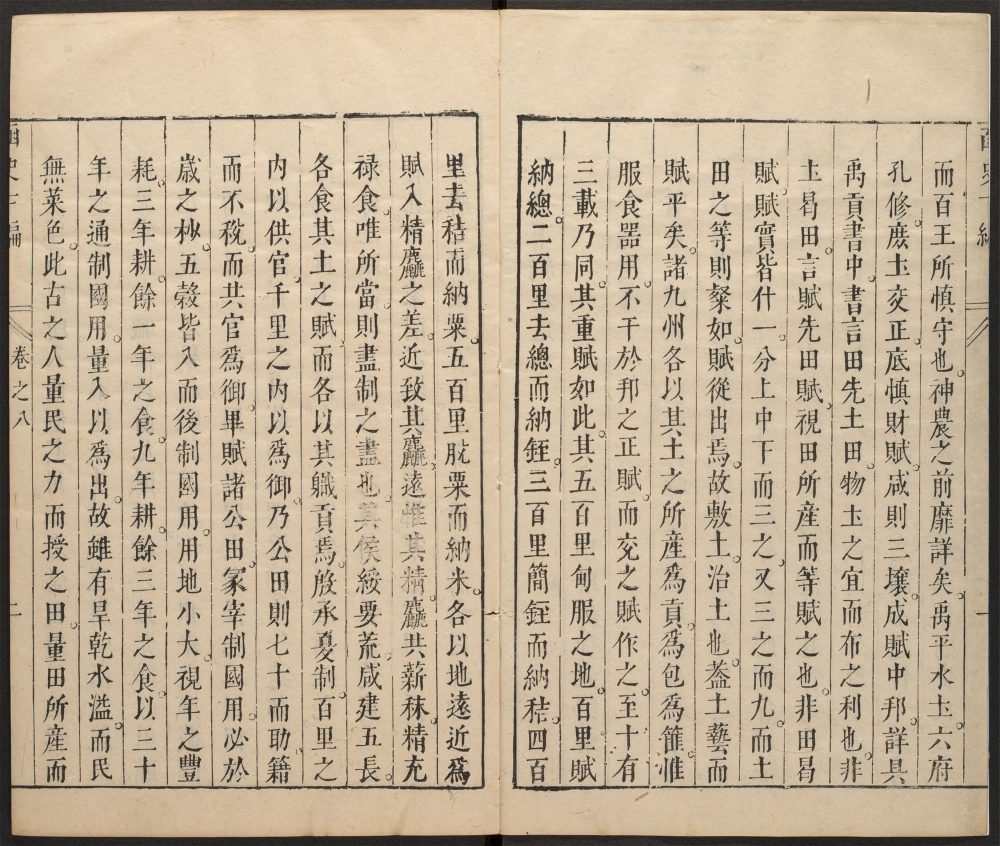 而百王所慎守也。神農之前靡詳矣。禹平水土。六府
孔修。庶土交正。底慎財賦。咸則三壤。成賦中邦。詳具
禹貢書中。書言田先土田。物土之宜而布之利也。非
土曷田。言賦先田賦。視田所産而等賦之也。非田曷
賦。賦實皆什一。分上中下而三之。又三之而九。而土
田之等則粲如。賦從出焉。故敷土。治土也。葢土藝而
賦平矣。諸九州各以其土之所產爲貢。爲包爲篚。惟
服食器用。不干於邦之正賦。而兗之賦作之至十有
三載乃同。其重賦如此。其五百里甸服之地。百里賦
納總。二百里去總而納銍。三百里簡銍而納秸。四百
里去秸而納粟。五百里脫粟而納米。各以地遠近爲
賦入精麤之差。近致其麤。遠惟其精。麤共薪秣。精充
祿食。唯所當。則盡制之盡也。其侯綏要荒。咸建五長。
各食其土之賦。而各以其職貢焉。殷承夏制。百里之
內以供官。千里之內以爲御。乃公田則七十而助。籍
而不稅。而共官爲御。畢賦諸公田。冢宰制國用。必於
歲之杪。五穀皆入而後制國用。用地小大。視年之豐
耗。三年耕。餘一年之食。九年耕。餘三年之食。以三十
年之通制國用。量入以爲出。故雖有旱乾水溢。而民
無菜色。此古之人量民之力而授之田。量田所産而
卷之八